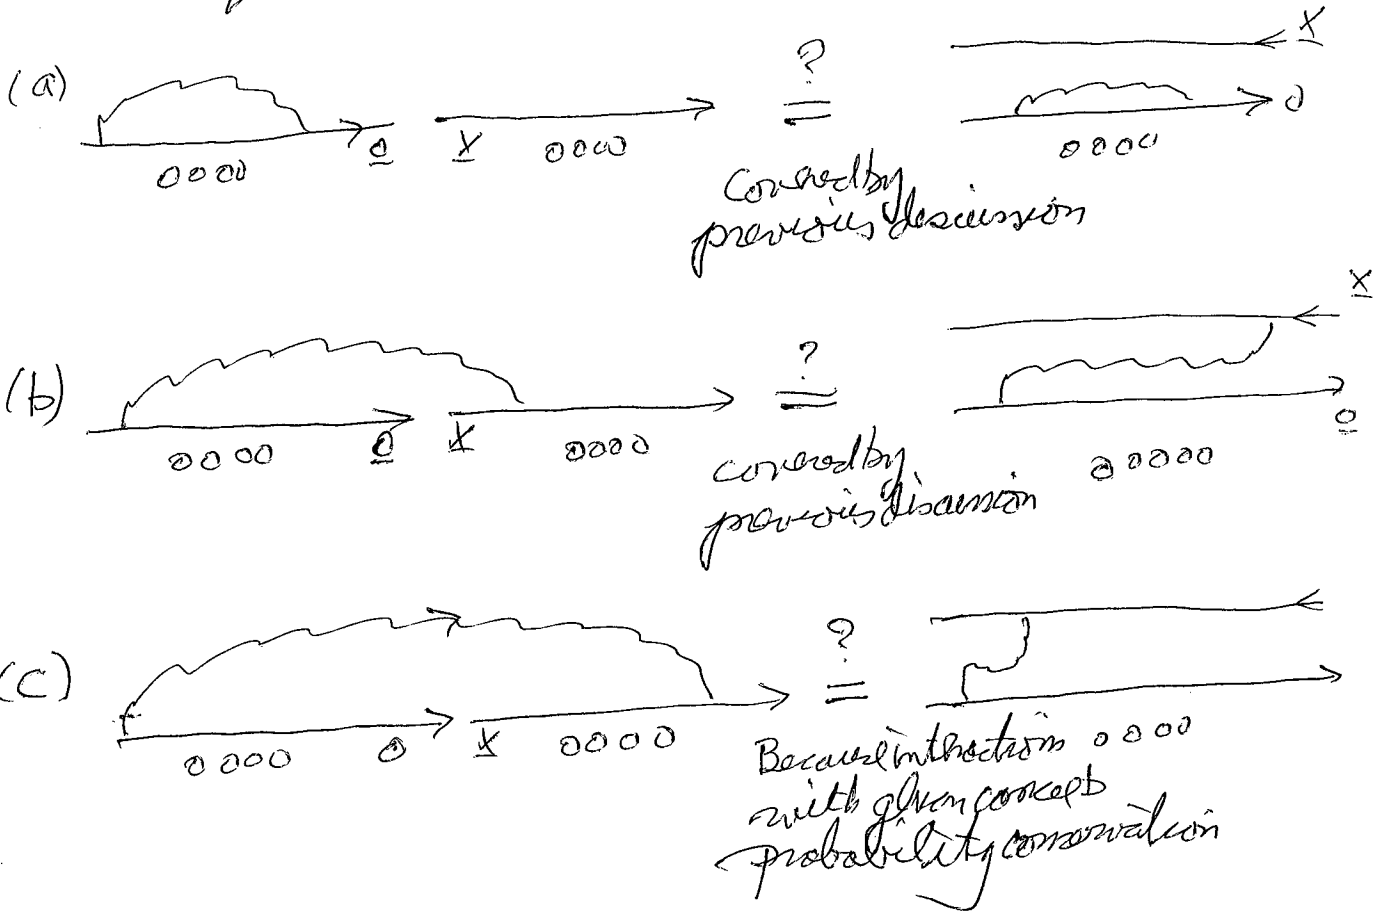 (a) 0000 0 X 0000 ? = X 0 0000
Covered by
previous discussion
(b) 0000 0 X 0000 ? = X 0 00000
covered by
previous discussion
(c) 0000 0 X 0000 ? = 0000
Because interaction
with gluon
probability conservation